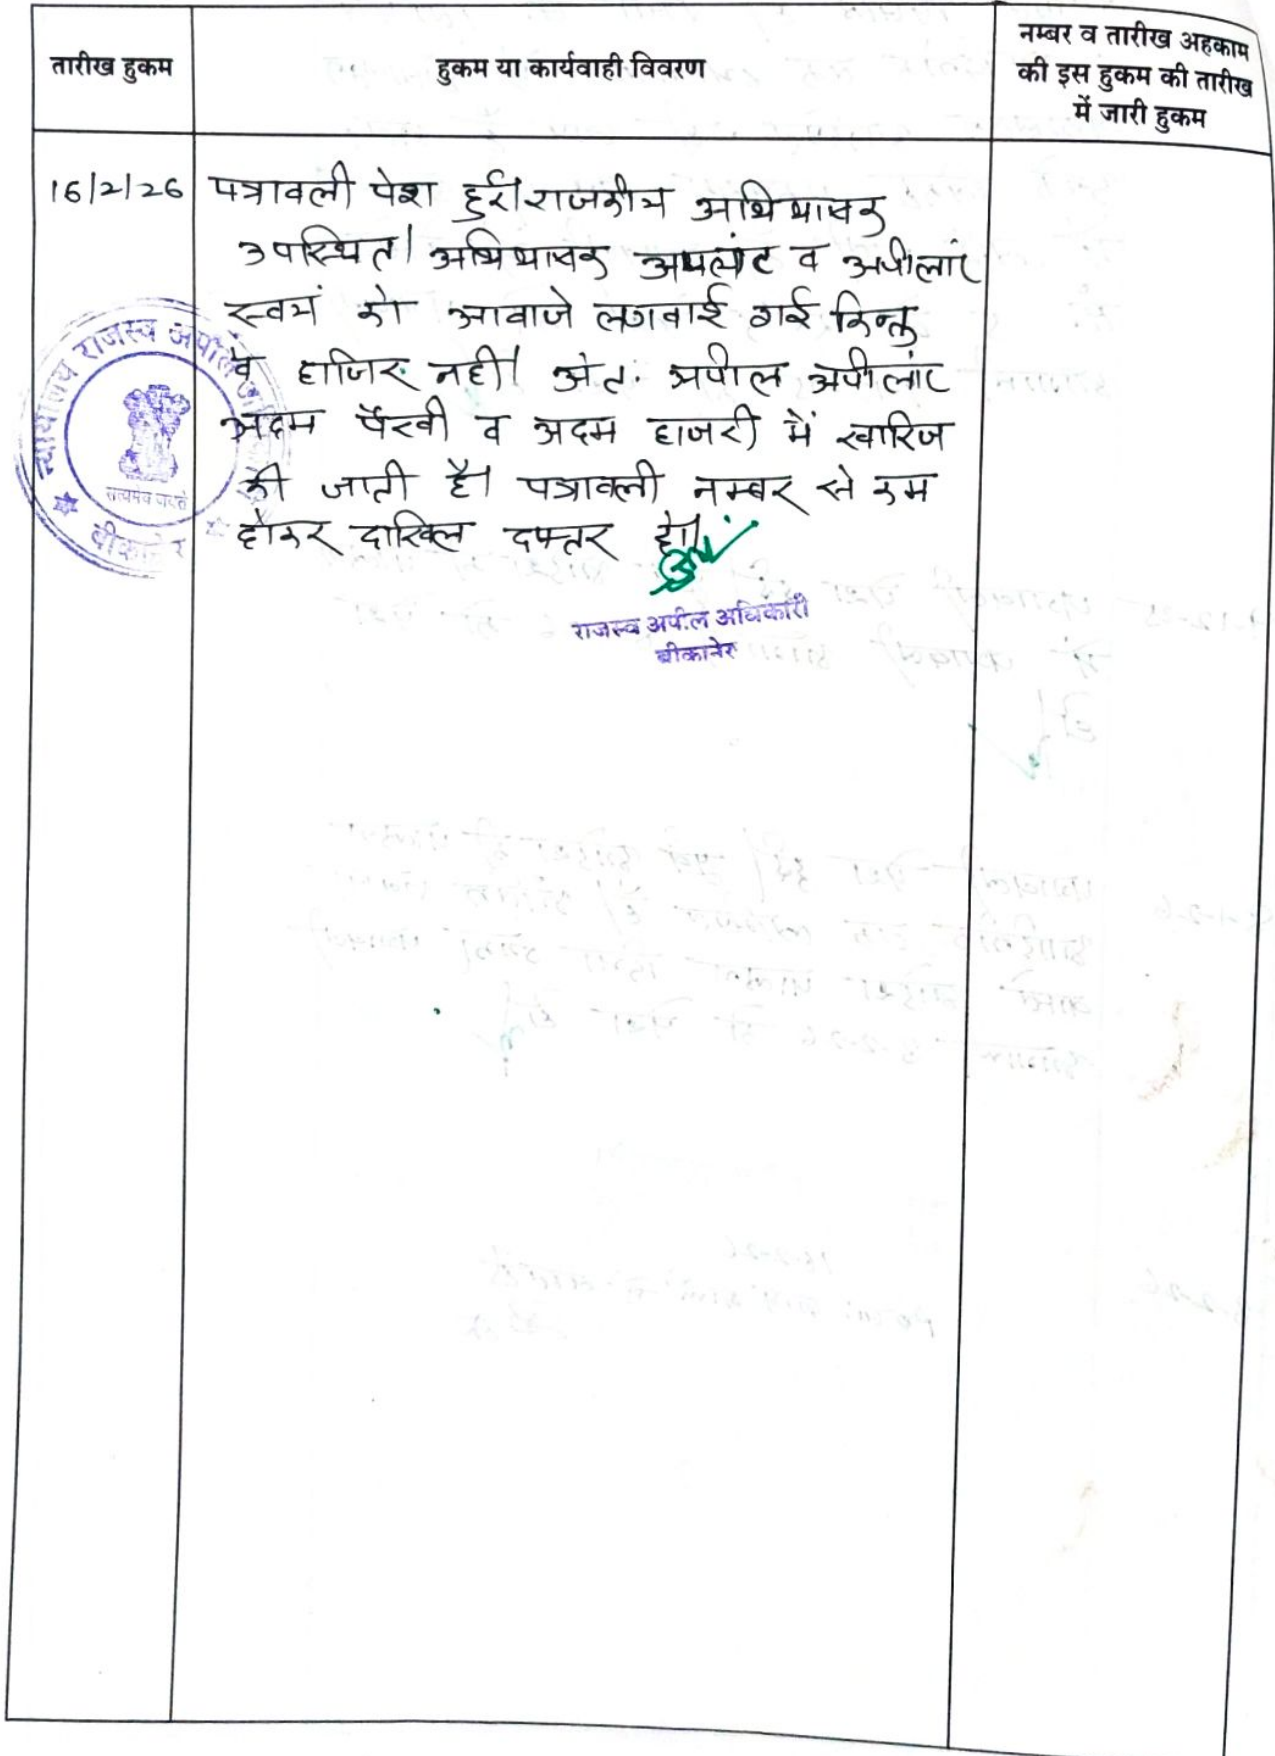 तारीख हुकम
हुकम या कार्यवाही विवरण
नम्बर व तारीख अहकाम
की इस हुकम की तारीख
में जारी हुकम
16/2/26
पत्रावली पेश हुई। राजकीय अभिभाषक
उपस्थित। अभिभाषक अपलांट व अपीलांट
स्वयं को आवाजे लगवाई गई किन्तु
वे हाजिर नही। अतः अपील अपीलांट
अदम पैरवी व अदम हाजरी में खारिज
की जाती है। पत्रावली नम्बर से कम
होकर दाखिल दफ्तर हो।
न्यायालय राजस्व अपील
सत्यमेव जयते
बीकानेर
राजस्व अपील अधिकारी
बीकानेर